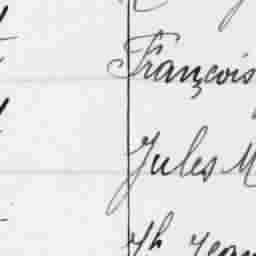 François
Jules M
Jh Jean